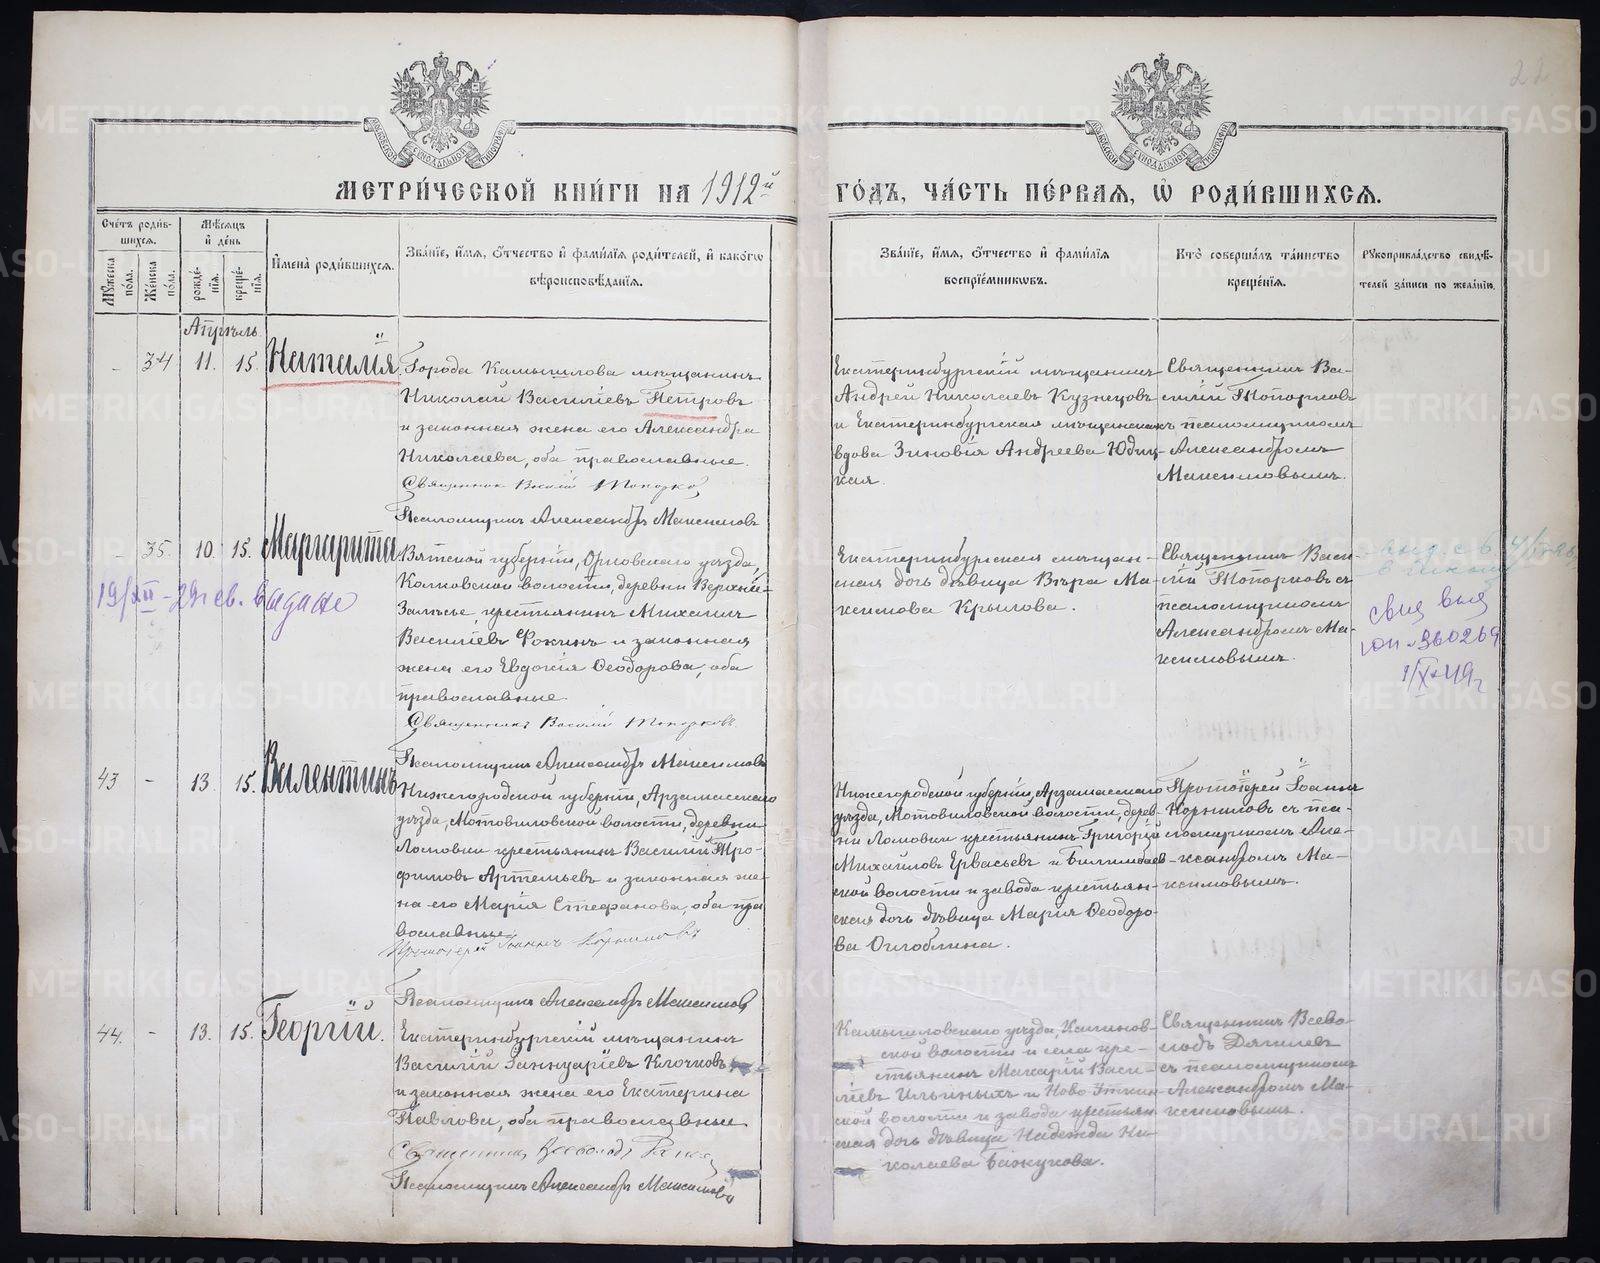 22
МОСКОВСКОЙ СѴНОДАЛЬНОЙ ТИПОГРАФІИ
МОСКОВСКОЙ СѴНОДАЛЬНОЙ ТИПОГРАФІИ
МЕТРИ́ЧЕСКОЙ КНИ́ГИ НА 1912й ГО́ДЪ, ЧА́СТЬ ПЕ́РВАЯ, Ѡ҆ РОДИ́ВШИХСЯ.
Сче́тъ роди́в-
шихся.
Мѣ́сяцъ
и҆ де́нь
Мꙋ́жеска
по́ла.
Же́нска
по́ла.
рожде́-
нїѧ.
креще́-
нїѧ.
И҆мена̀ роди́вшихся.
Зва́нїе, и҆́мѧ, ѻ҆́тчество и҆ фами́лїѧ роди́телей, и҆ како́гѡ
вѣроисповѣ́данїѧ.
Зва́нїе, и҆́мѧ, ѻ҆́тчество и҆ фами́лїѧ
воспрїе́мникѡвъ.
Кто̀ соверша́лъ та́инство
креще́нїѧ.
Рꙋкоприкла́дство свидѣ́-
телей за́писи по жела́нїю.
Апрѣль
- 34 11. 15. Наталія
Города Камышлова мѣщанинъ
Николай Василіевъ Петровъ
и законная жена его Александра
Николаева, оба православные.
Священник Василій Топорков
Псаломщикъ Александръ Максимовъ
Екатеринбургскій мѣщанинъ
Андрей Николаевъ Кузнецовъ
и Екатеринбургская мѣщанская
вдова Зиновія Андреева Юдиц-
кая.
Священникъ Ва-
силій Топорковъ
съ псаломщикомъ
Александромъ
Максимовымъ.
- 35. 10. 15. Маргарита
19/XII - 29 г св. выдано
Вятской губерніи, Орловскаго уѣзда,
Колковской волости, деревни Верхній-
Замѣсье, крестьянинъ Михаилъ
Василіевъ Фокинъ и законная
жена его Евдокія Ѳеодорова, оба
православные.
Священникъ Василій Топорковъ
Псаломщикъ Александръ Максимовъ
Екатеринбургская мѣщан-
ская дочь дѣвица Вѣра Ма-
ксимова Крылова.
Священникъ Васи-
лій Топорковъ съ
псаломщикомъ
Александромъ Ма-
ксимовымъ.
свид выд
юп № 360269
1/IX-49 г
43 - 13. 15. Валентинъ
Нижегородской губерніи, Арзамасскаго
уѣзда, Мотовиловской волости, деревни
Ломовки крестьянинъ Василій Тро-
фимовъ Артемьевъ и законная же-
на его Марія Стефанова, оба пра
вославные.
Протоіерей Іоаннъ Корниловъ
Псаломщикъ Александръ Максимовъ
Нижегородской губерніи, Арзамасскаго
уѣзда, Мотовиловской волости, дерев-
ни Ломовки крестьянинъ Григорій
Михаиловъ Ервасьевъ и Билимбаев-
ской волости и завода крестьян-
ская дочь дѣвица Марія Ѳеодоро-
ва Оглоблина.
Протоіерей Іоаннъ
Корниловъ съ пса-
ломщикомъ Але-
ксандромъ Ма-
ксимовымъ.
44. - 13. 15. Георгій.
Екатеринбургскій мѣщанинъ
Василій Іаннуаріевъ Клочковъ
и законная жена его Екатерина
Павлова, оба православные
Священникъ Всеволодъ
Псаломщикъ Александръ Максимовъ
Камышловскаго уѣзда, Калинов-
ской волости и села кре-
стьянинъ Макарій Васи-
ліевъ Ильиныхъ и Ново-Уткин-
ской волости и завода крестьян
ская дочь дѣвица Надежда Ни-
колаева Бажукова.
Священникъ Всево-
лодъ
съ псаломщикомъ
Александромъ Ма-
ксимовымъ.
METRIKI.GASO-URAL.RU